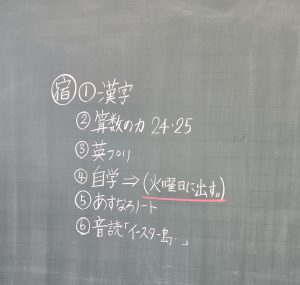 宿 ①漢字
②算数の力 24・25
③英プリ
④自学⇒(火曜日に出す。)
⑤あすなろノート
⑥音読「イースター島…」